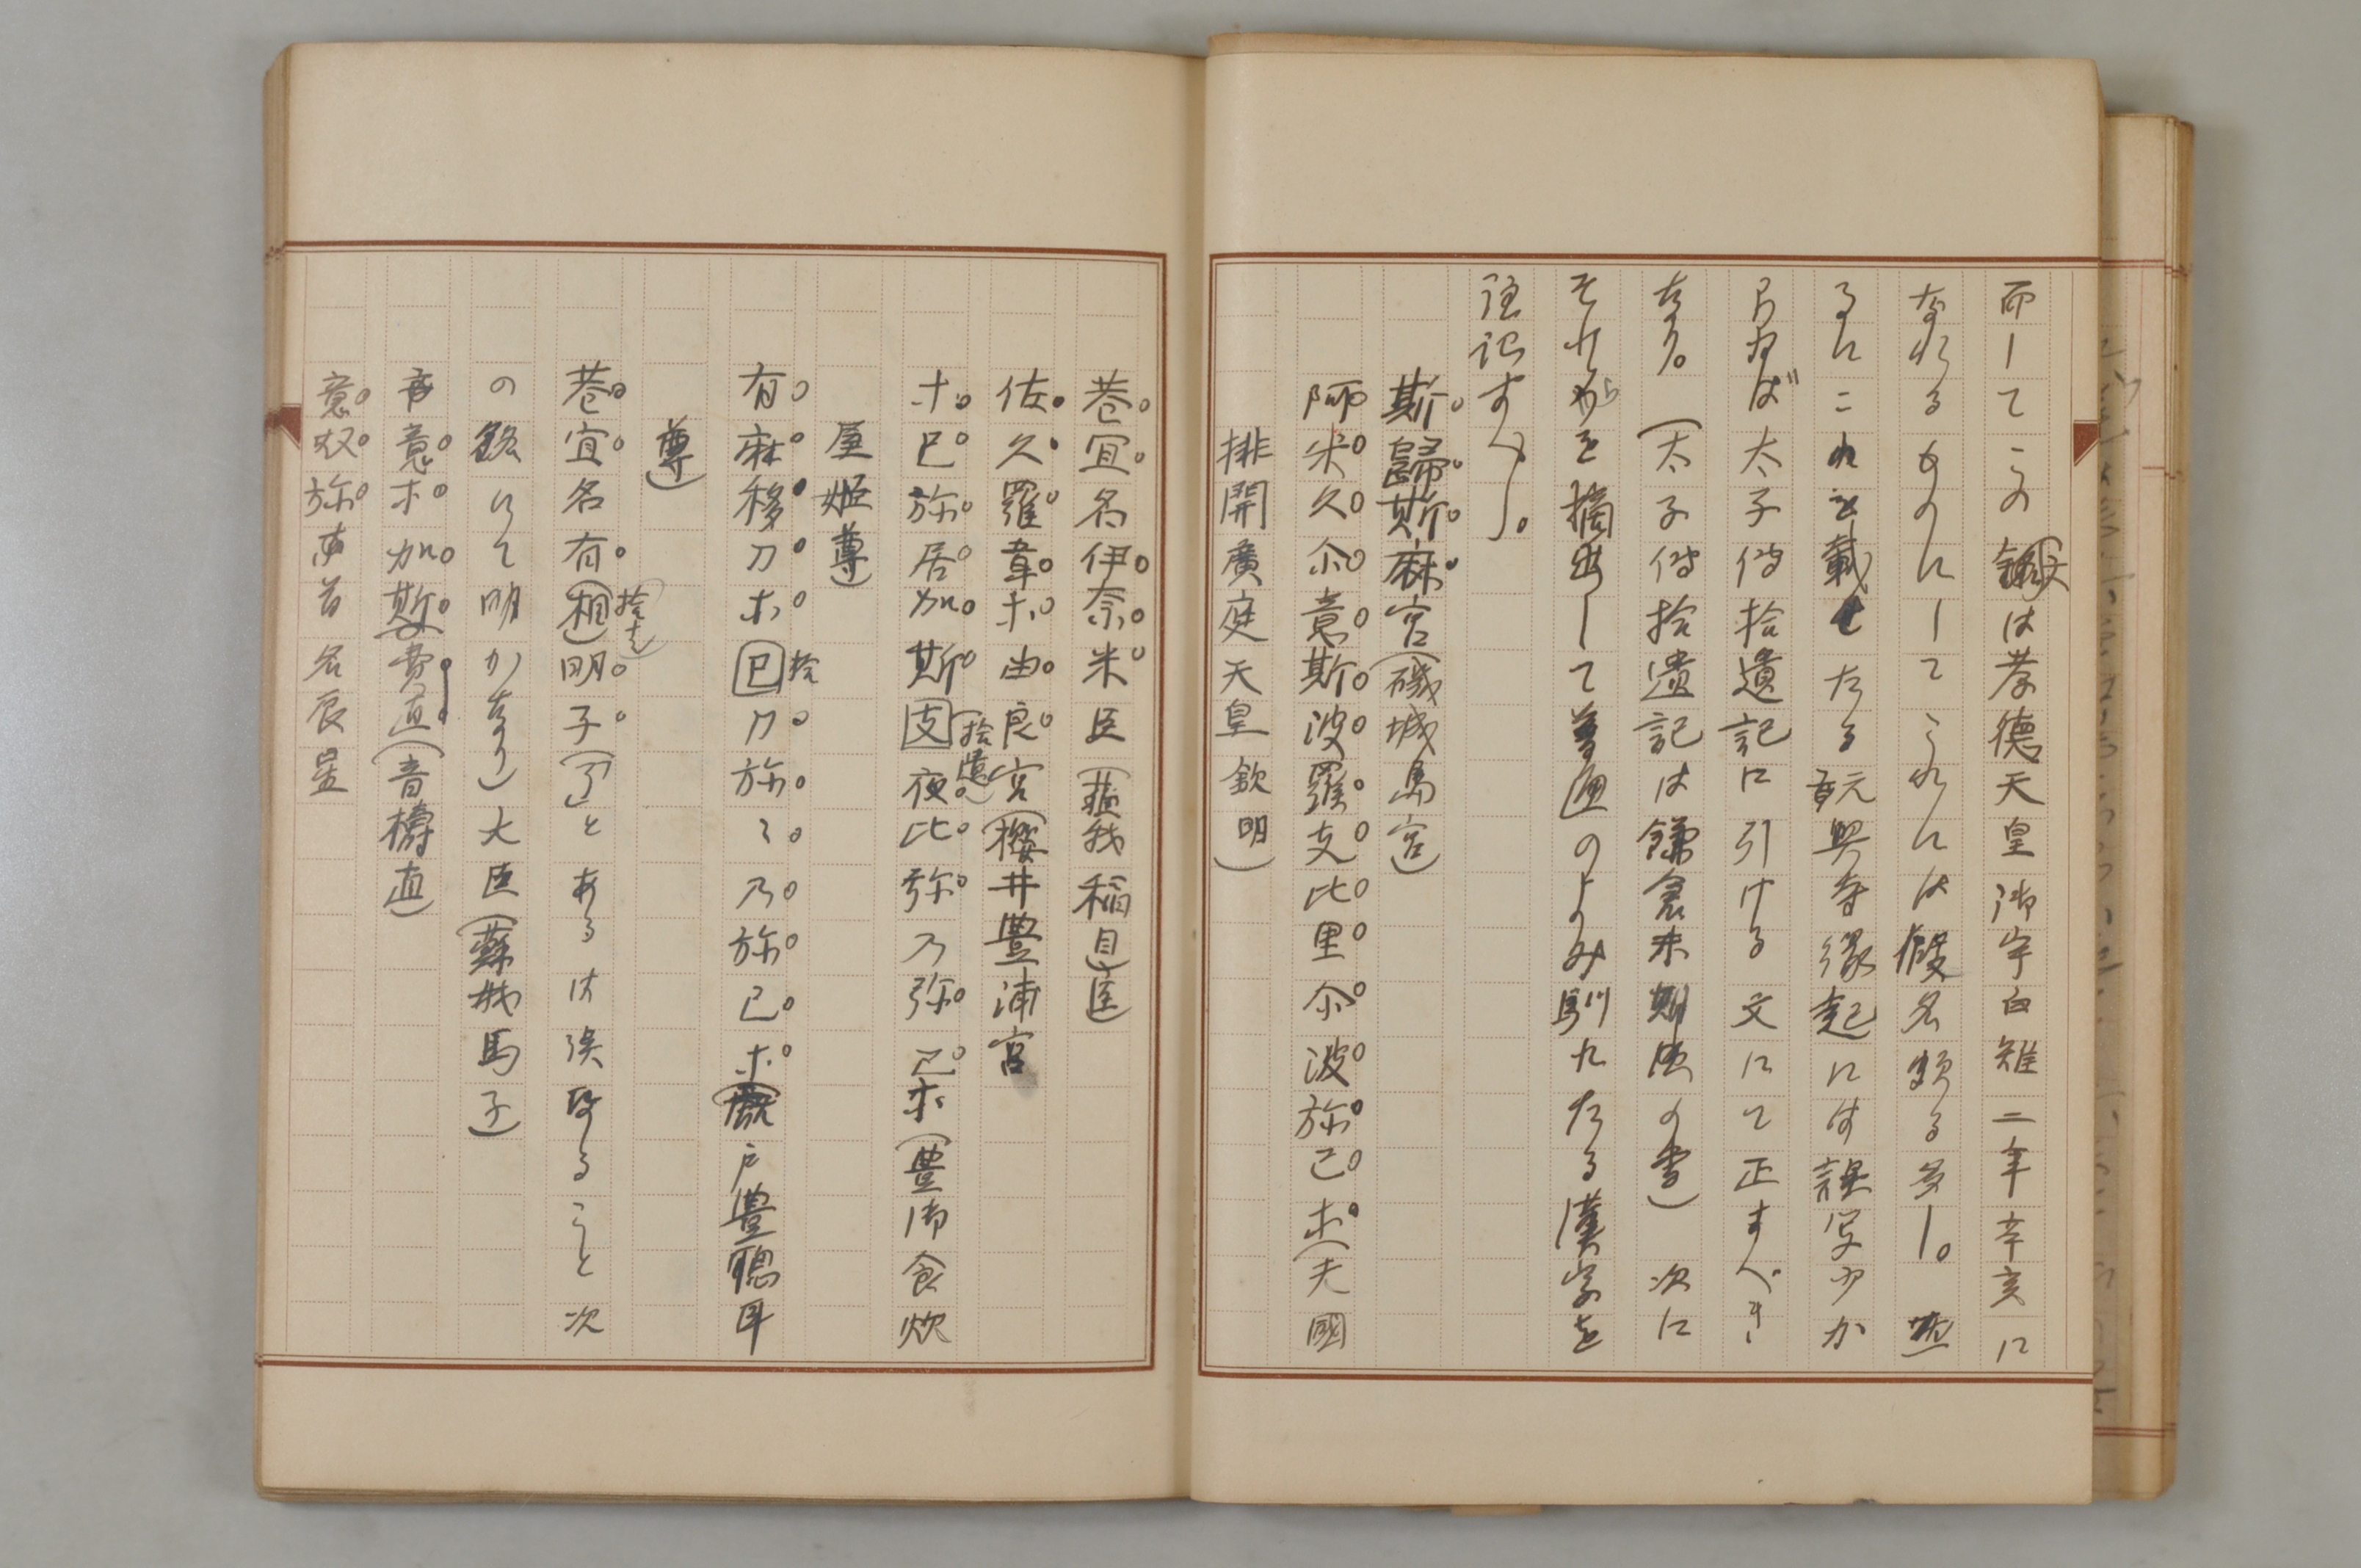 而してこの銘文は孝徳天皇御宇白雉二年辛亥に
なれるものにしてこれには假名頗る多し。然
るにこれを載せたる元興寺縁起には誤写少か
らねば太子傳拾遺記に引ける文にて正すべき
なり。（太子傳拾遺記は鎌倉末期の書）次に
それらを摘出して普通のよみ馴れたる漢字を
注記すべし。
斯歸斯麻宮（磯城島宮）
阿米久尒意斯波羅支比里尒波弥己ホ（天國
排開廣庭天皇欽明）
巷宜名伊奈米臣（蘇我稲目臣）
佐久羅韋ホ由良宮（櫻井豊浦宮
ホ已弥居加斯支（拾遺）夜比弥乃弥己ホ（豊御食炊
屋姫尊）
有麻移刀ホ巳拾刀弥々乃弥己ホ（厩戸豊聰耳
尊）
巷宜名有（相）明子（了）とあるは誤なること次
の銘にて明かなり）大臣（蘇我馬子）
意ホ加斯費直（音檮直）
意奴弥首名辰星